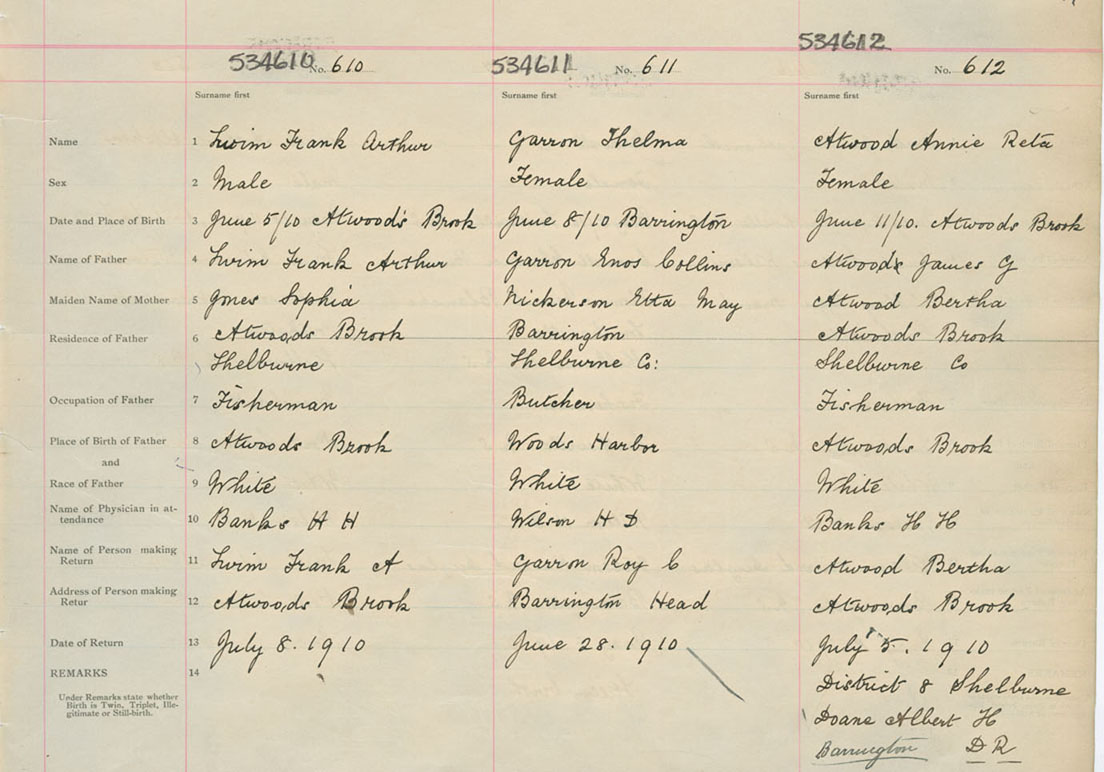 534610 No. 610 534611 No. 611 534612 No. 612
Surname first Surname first Surname first
Name 1 Swim Frank Arthur Garron Thelma Atwood Annie Reta
Sex 2 Male Female Female
Date and Place of Birth 3 June 5/10 Atwood's Brook June 8/10 Barrington June 11/10. Atwoods Brook
Name of Father 4 Swim Frank Arthur Garron Enos Collins Atwood James G
Maiden Name of Mother 5 Sophia Nickerson Etta May Atwood Bertha
Residence of Father 6 Atwoods Brook Barrington Atwoods Brook
Shelburne Shelburne Co: Shelburne Co
Occupation of Father 7 Fisherman Butcher Fisherman
Place of Birth of Father 8 Atwoods Brook Woods Harbor Atwoods Brook
and
Race of Father 9 White White White
Name of Physician in at-
tendance 10 Banks H H Wilson H D Banks H H
Name of Person making
Return 11 Swim Frank A Garron Roy C Atwood Bertha
Address of Person making
Retur 12 Atwoods Brook Barrington Head Atwoods Brook
Date of Return 13 July 8. 1910 June 28. 1910 July 5. 1910
REMARKS 14 District 8 Shelburne
Under Remarks state whether
Birth is Twin, Triplet, Ille-
gitimate or Still-birth.
Doane Albert H
Barrington D R